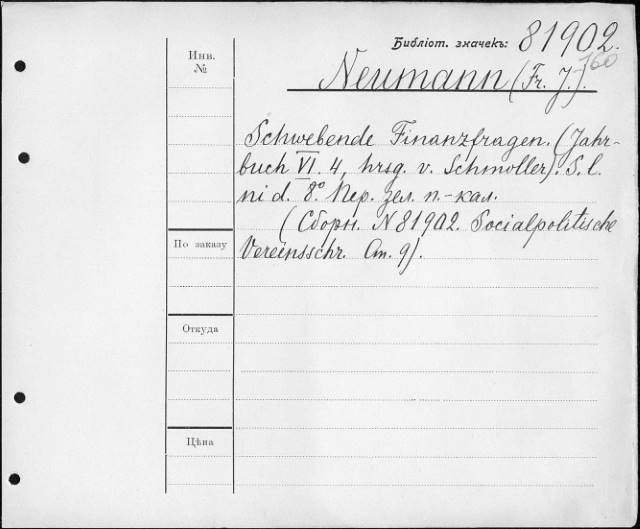 Библіот. значекъ: 81902.
160
Инв.
№
Neumann (Fr. J.).
Schwebende Finanzfragen. (Jahr-
buch VI. 4, hrsg. v. Schmoller). S. l.
ni d. 8º. Пер. зел. п.-кал.
(Сборн. N 81902. Socialpolitische
По заказу
Vereinsschr. Ат. 9).
Откуда
Цѣна